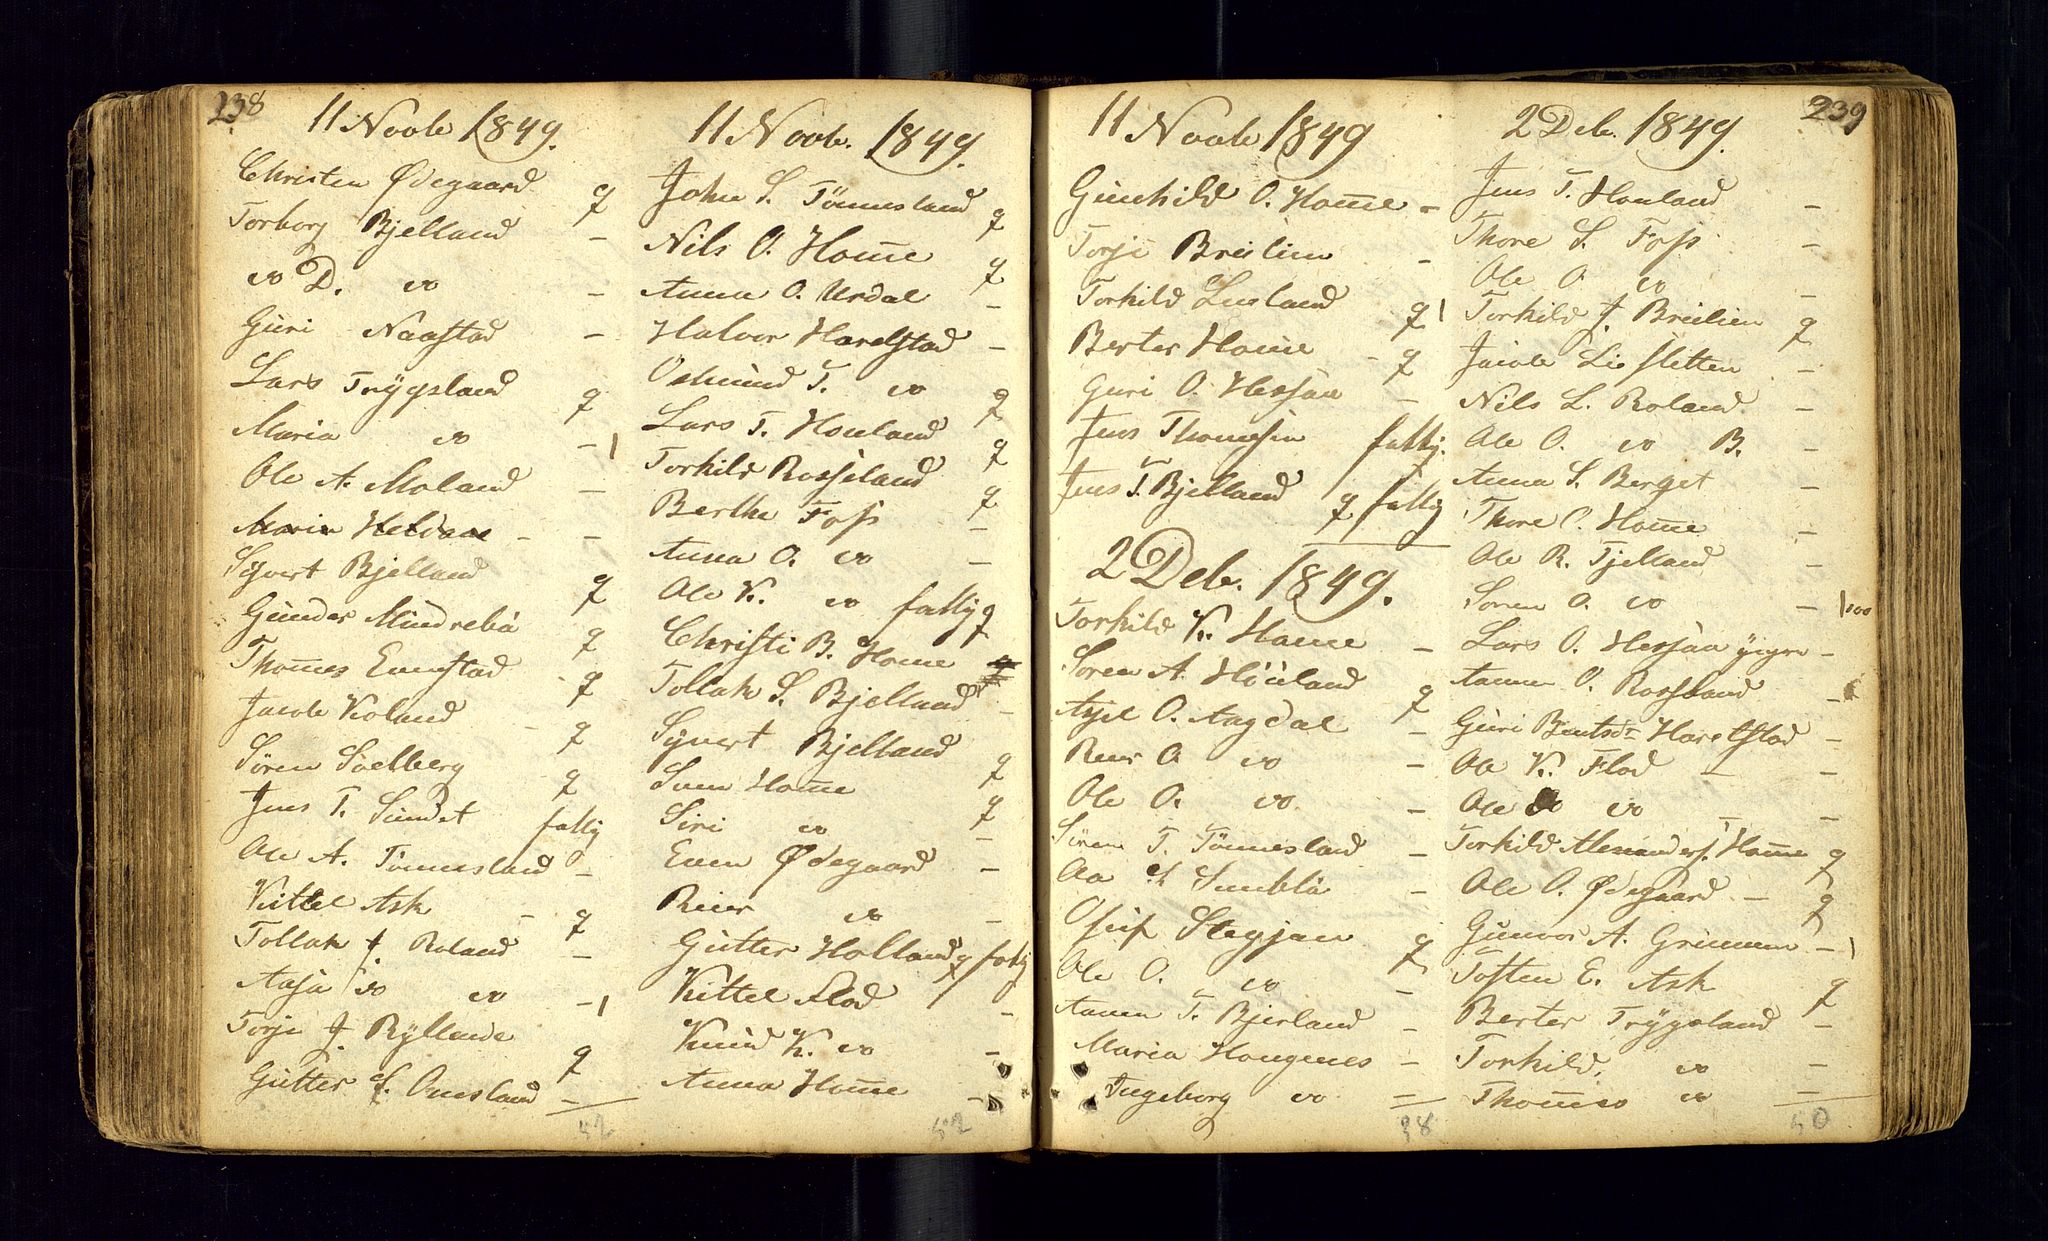 238
11 Novb 1849.
Christen Ødegaard q
Torborg Bjelland -
do D. do -
Guri Naastad -
Lars Trygsland q
Maria do - 1
Ole A. Moland -
Maria Heldaas - -
Syvert Bjelland q
Gunder Mindrebø q
Thomes Evenstad - q
Jacob Roland - q
Søren Solberg q
Jens T. Sundet fattig
Ole A. Tönnesland -
Kittel Ask - q
Tollak J. Roland -
Aasa do do - 1
Torje J. Rylland q
Gutter S. Omsland -
52
11 Novb. 1849.
John S. Tönnesland q
Nils O. Home q
Anna O. Urdal -
Halvor Harelstad -
Osmund T. do q
Lars T. Honland q
Torkild Rosseland q
Berthe Foss -
Anna O. do -
Ole K. do fattig q
Christi B. Home
Tollak S. Bjelland -
Syvert Bjelland q
Sven Home q
Siri do -
Even Ødegaard -
Reier do -
Gutter Holland q fattig
Kittel Flod -
Knud K. do -
Anna Home -
52
11 Novb 1849
Gunhild O. Home -
Torje Breilien -
Torkild Lusland q 1
Berter Home - q
Guri O. Hessaa -
Jens Thomesen fattig.
Jens T. Bjelland q fattig
2 Deb. 1849.
Torkild K. Home -
Søren A. Hönland q
Axsel O. Aagdal -
Reier O do -
Ole O. do -
Sören T. Tönnesland -
Aa S Smeblö -
Osuf Stegjan q
Ole O. do -
Aanen T. Bjerland -
Maria Hougenes -
Ingeborg do -
38
2 Deb. 1849. 239
Jens T. Honland -
Thore S. Foss -
Ole O. do -
Torkild J. Breilien q
Jacob Lisletten -
Nils L. Roland -
Ole O. do B. -
Anna S. Berget -
Thore O. Home -
Ole R. Tjelland -
Soren O. do - 100
Lars O. Hessaa yngre -
Aanen O. Rossland -
Guri Bentsdr Harelstad -
Ole K. Flod - -
Ole do -
Torkild Alexanders. Home q
Ole O. Ødegaard - q
Gunvor A. Grimmen - 1
Tosten E. Ask q
Berter Trygsland -
Torkild, do -
Thomes do -
50